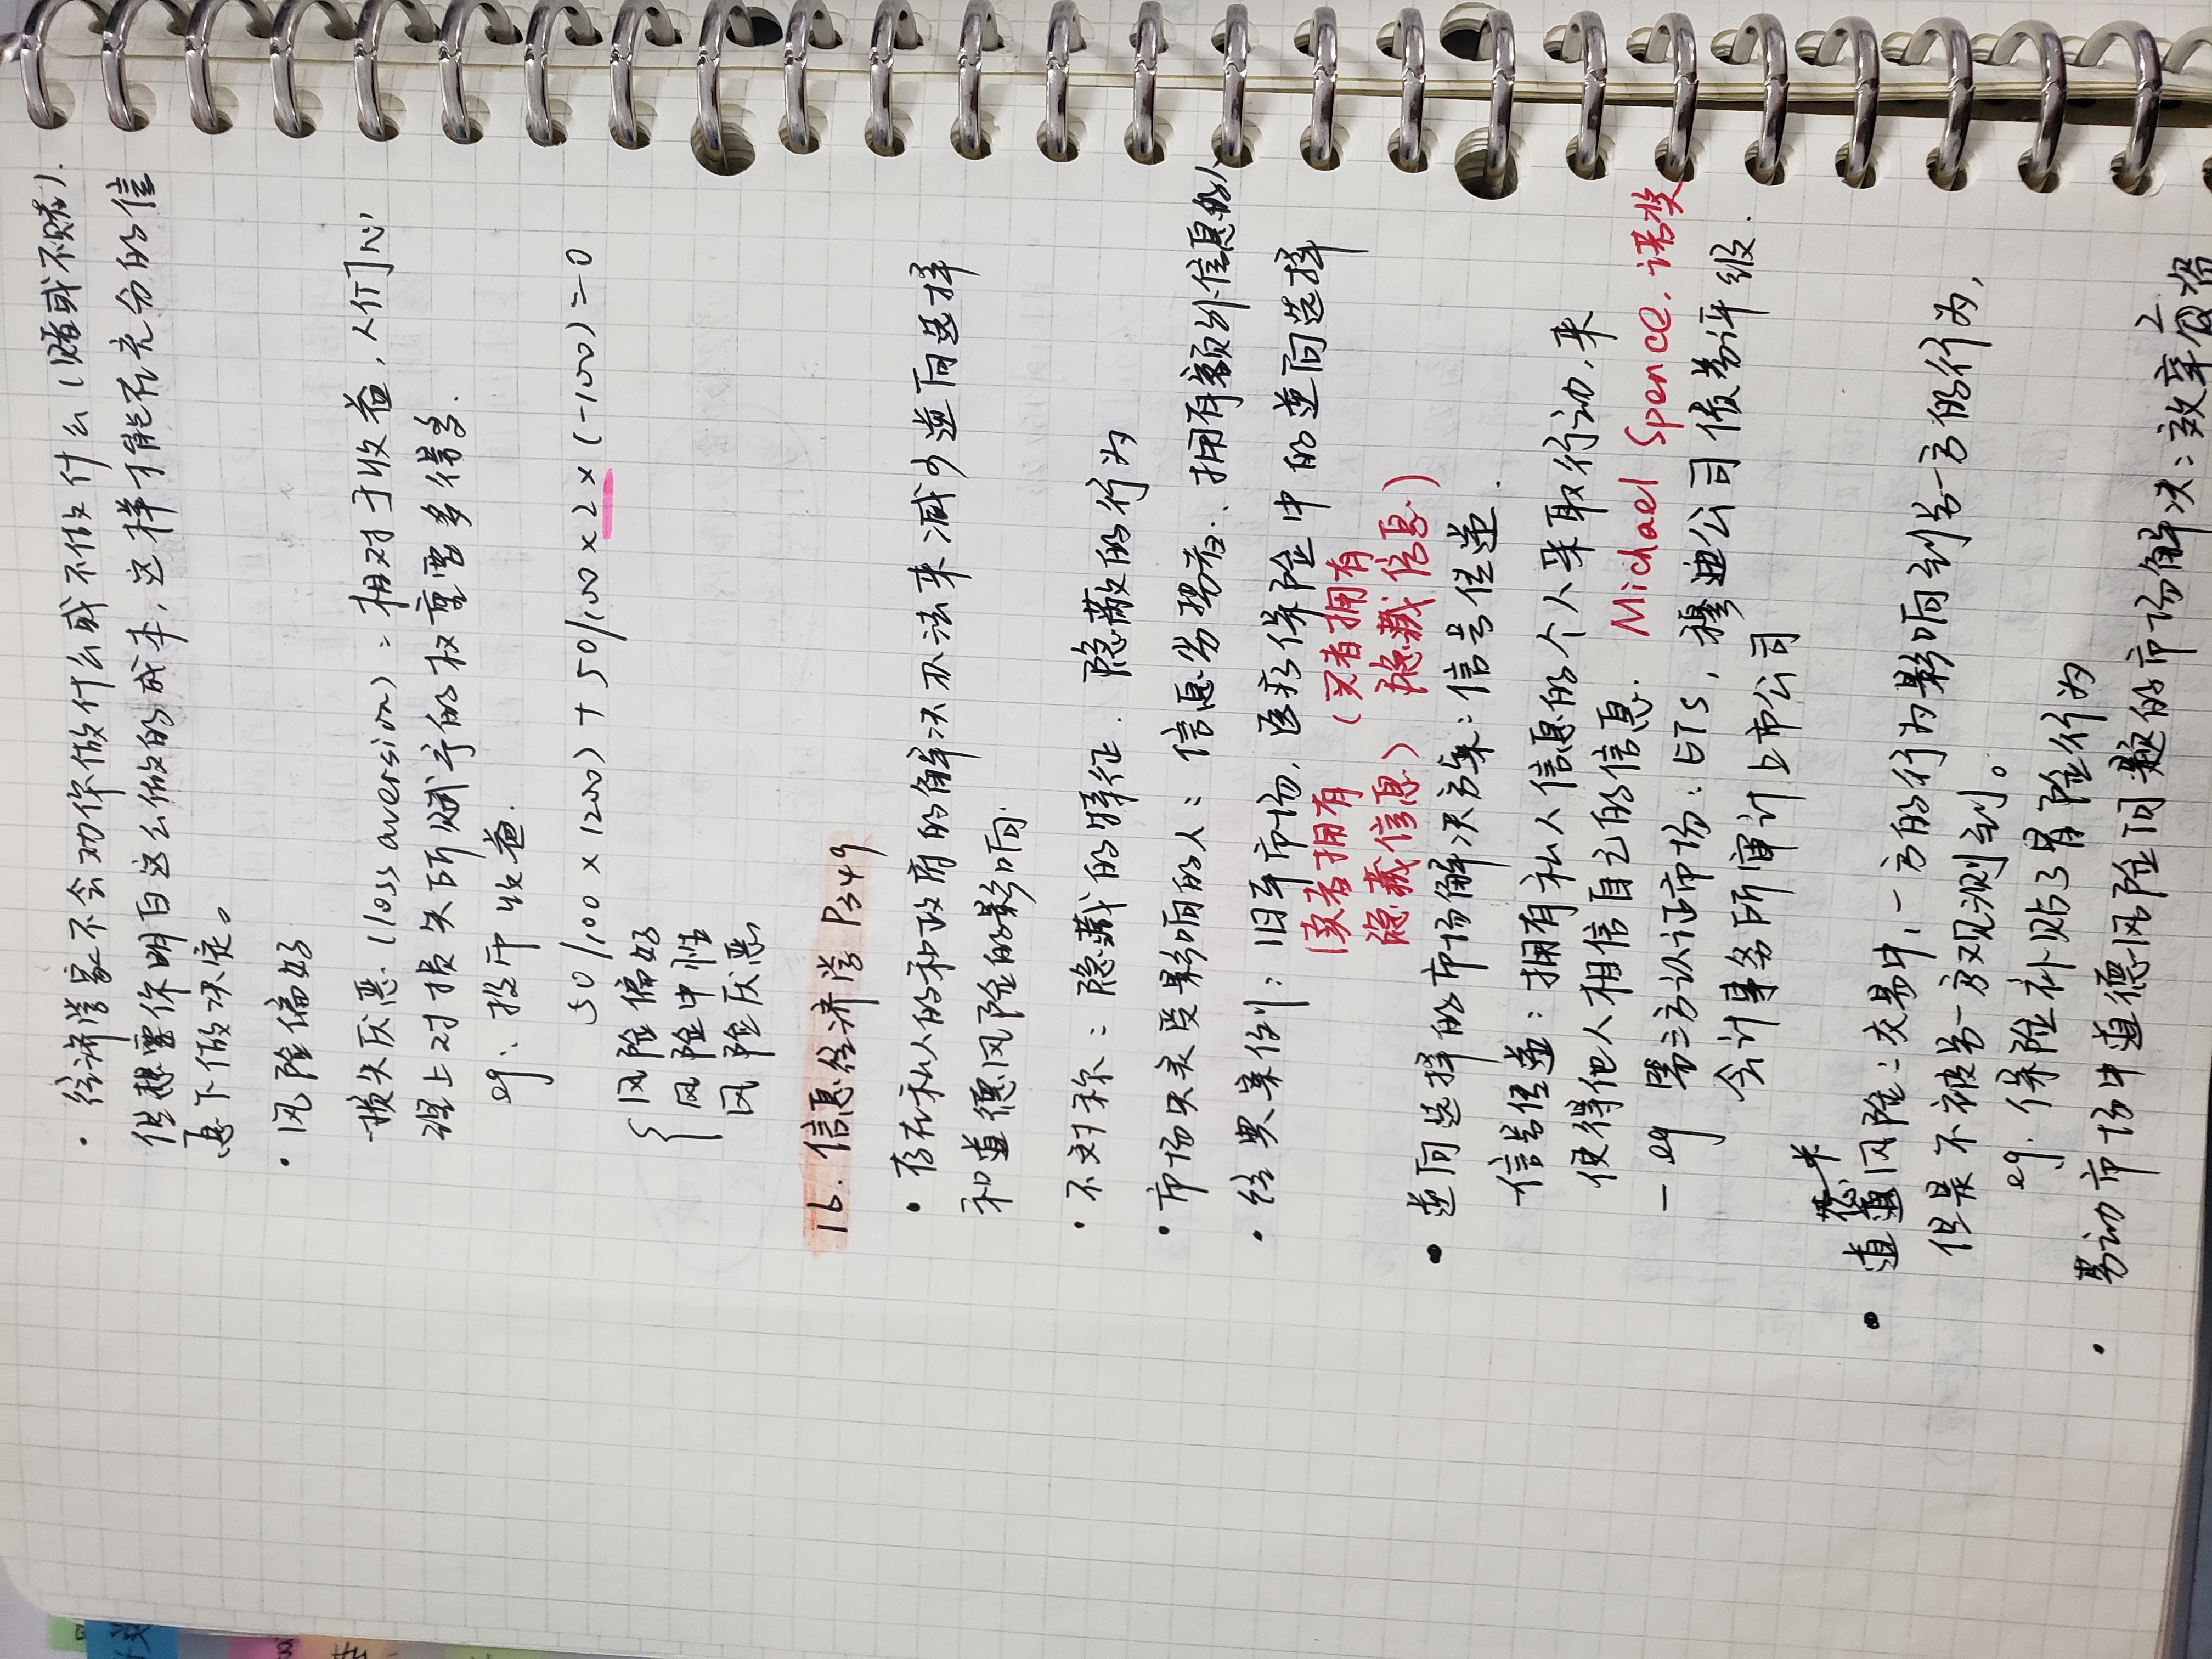 · 经济学家不会劝你做什么或不做什么(赌或不赌).
但想要你明白这么做的成本,这样才能在充分的信
息下做决定。
· 风险偏好
损失厌恶.(loss aversion):相对于收益,人们心
理上对损失所赋予的权重要多得多.
eg:投币收益.
50/100 x 1200) + 50/100 x 2 x (-100) = 0
{ 风险偏好
风险中性
风险厌恶
16. 信息经济学 P349
· 存在私人的和政府的解决办法来减少逆向选择
和道德风险的影响.
· 不对称:隐藏的特征. 隐蔽的行为
· 市场失灵受影响的人:信息劣势者.拥有额外信息的人
· 经典案例:旧车市场,医疗保险中的逆向选择
(卖者拥有 (买者拥有
隐藏信息) 隐藏信息)
· 逆向选择的市场解决方案:信号传递.
信号传递:拥有私人信息的个人采取行动,来
使得他人相信自己的信息. Michael Spence. 诺奖
- eg 第三方认证市场:ETS,穆迪公司债券评级.
会计事务所审计上市公司
· 道德风险:交易中,一方的行为影响到另一方的行为,
但是不被另一方观测到。
eg. 保险补贴了冒险行为
· 劳动市场中道德风险问题的市场解决:效率工资